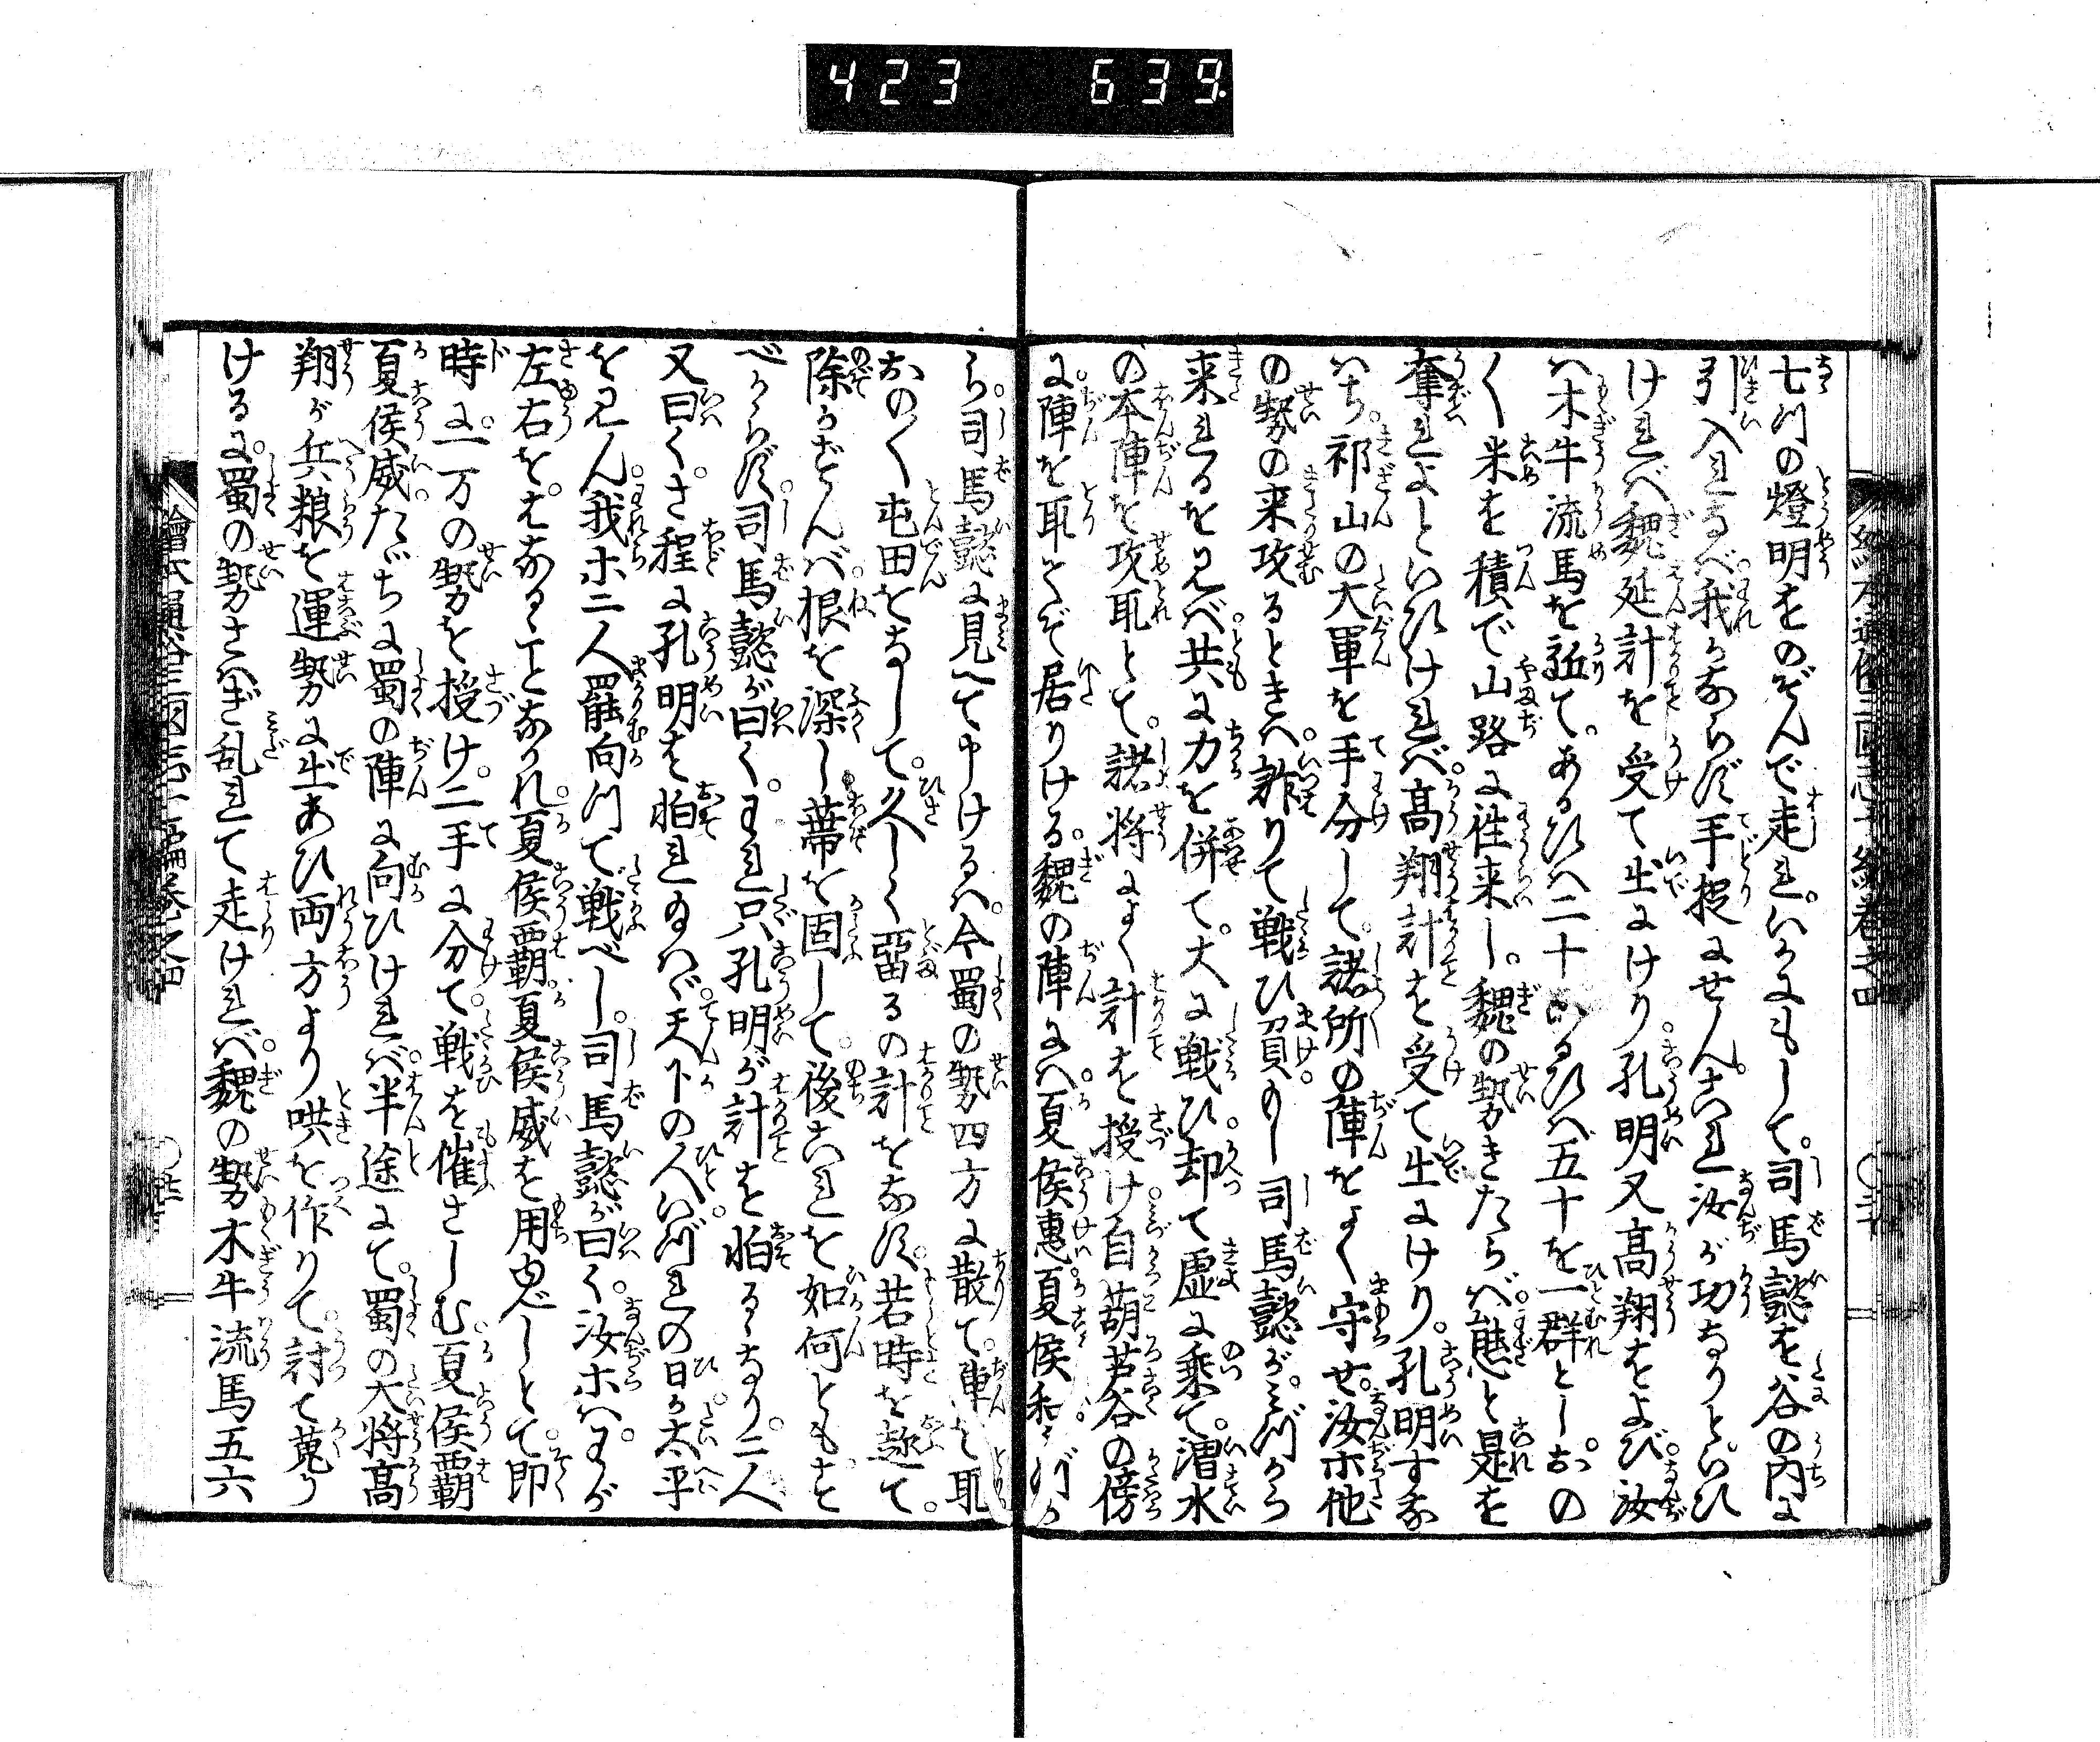 423 639
七ツの燈明をのぞんで走れ。いかにもして。司馬懿を谷の内に
引入れなバ。我かならず手捉にせん。これ汝が功なりといひ
けれバ魏延計を受て出にけり。孔明又高翔をよび。汝
ハ木牛流馬を駈て。あるひハ二十あるひハ五十を一群とし。おの
〱米を積で山路に徃来し。魏の勢きたらバ。態と是を
奪れよといひけれバ。高翔計を受て出にけり。孔明すな
ハち。祁山の大軍を手分して。諸所の陣をよく守せ。汝ホ他
の勢の来攻るときハ。詐りて戦ひ負けよ。司馬懿が。ミづから
来れるを見バ。共に力を併て。大に戦ひ。却て虚に乗て。渭水
の本陣を攻取とて。諸将によく計を授け。自葫芦谷の傍
に。陣を取てぞ居りける。魏の陣にハ。夏侯惠夏侯和ミづか
ら。司馬懿に見へて申けるハ。今蜀の勢四方に散て。陣を取
おの〱屯田をなして。久しく畱るの計をなす。若時を趂て。
除かずんバ。根を深し蔕を固して。後これを如何ともす
べからず。司馬懿が曰く。これ只孔明が計を怕るゝなり。二人
又曰く。さ程に孔明を怕れ玉ハヾ。天下の人。いづれの日か太平
を見ん。我ホ二人罷向つて戦べし。司馬懿が曰く。汝ホハ。わが
左右を。はなるゝことなかれ。夏侯覇夏侯威を用ゆべしとて。即
時に。一万の勢を授け。二手に分て。戦を催さしむ。夏侯覇
夏侯威。たゞちに蜀の陣に向ひけれバ。半途にて。蜀の大将高
翔が兵粮を運勢に出あひ両方より哄を作りて。討て蒐り
ける に。蜀の勢さハぎ乱れて走けれバ。魏の勢木牛流馬五六
繪本通俗三國志七編巻之四